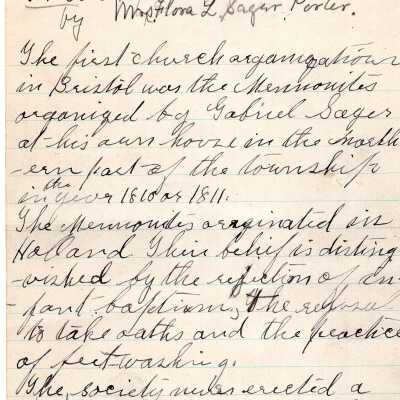 by Mrs Flora L. Sager Porter.
The first church organizations
in Bristol was the Mennonites
organized by Gabriel Sager
at his own house in the north
-ern part of the township
in the year 1810 or 1811.
The Mennonites originated in
Holland Their belief is disting
-uished by the rejection of in-
-fant baptism, the refusal
to take oaths and the practice
of feet washing.
The society never erected a